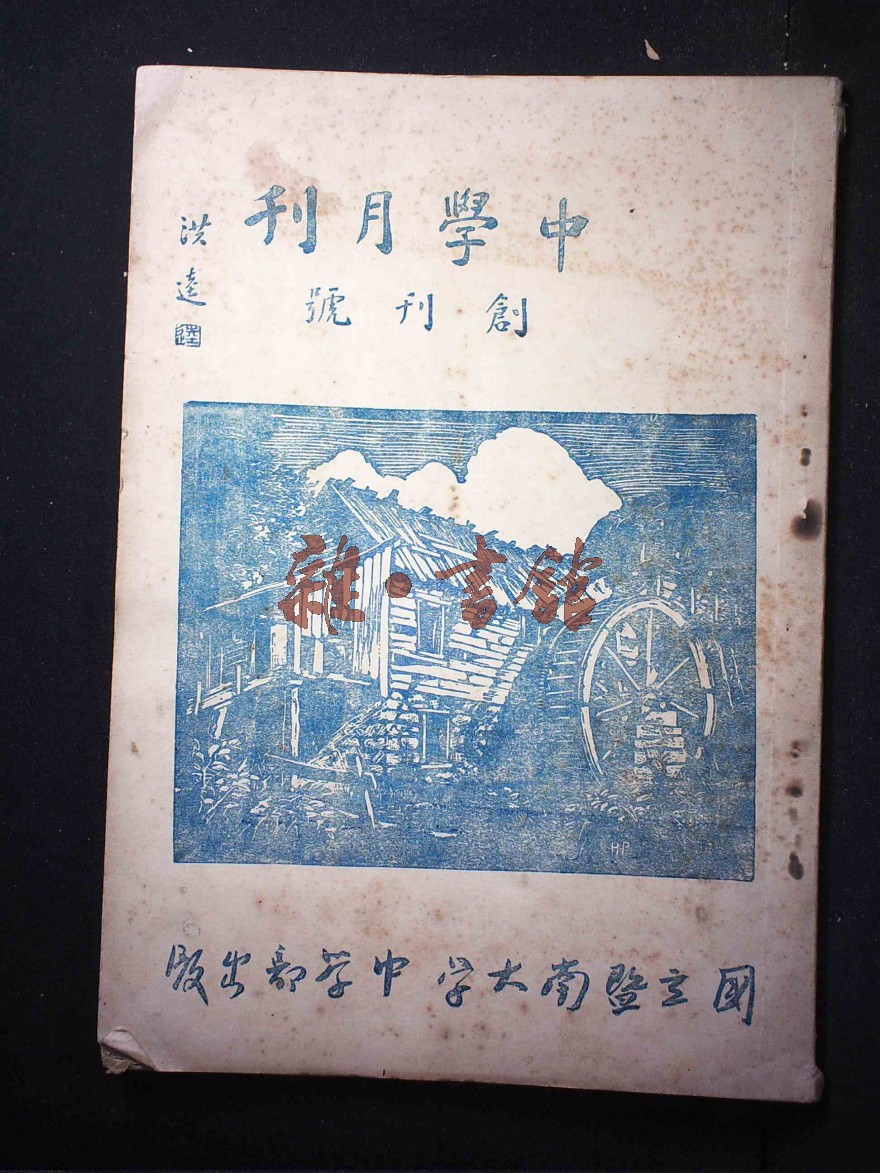 中學月刊
創刊號
洪逵
雜·書館
HP
國立暨南大学中学部出版